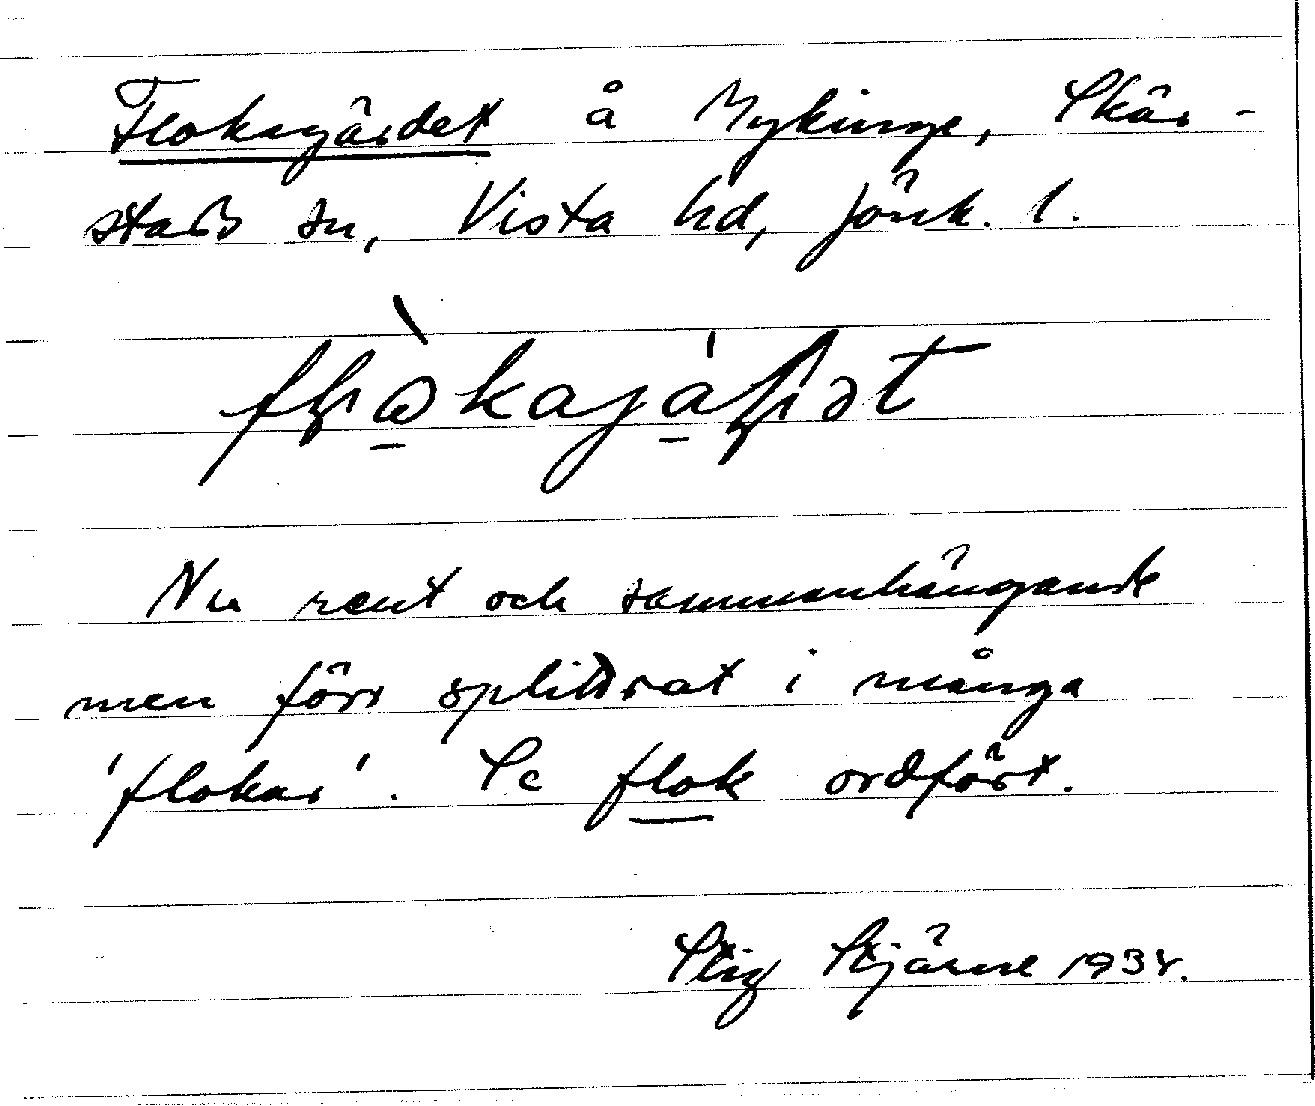 Flokagärdet å Mykinge, Skär-
stads sn, Vista hd, Jönk. l.
Nu rent och sammanhängande
men förr splittrat i många
'flokar'. Se flok ordfört.
Stig Stjärne 1934.